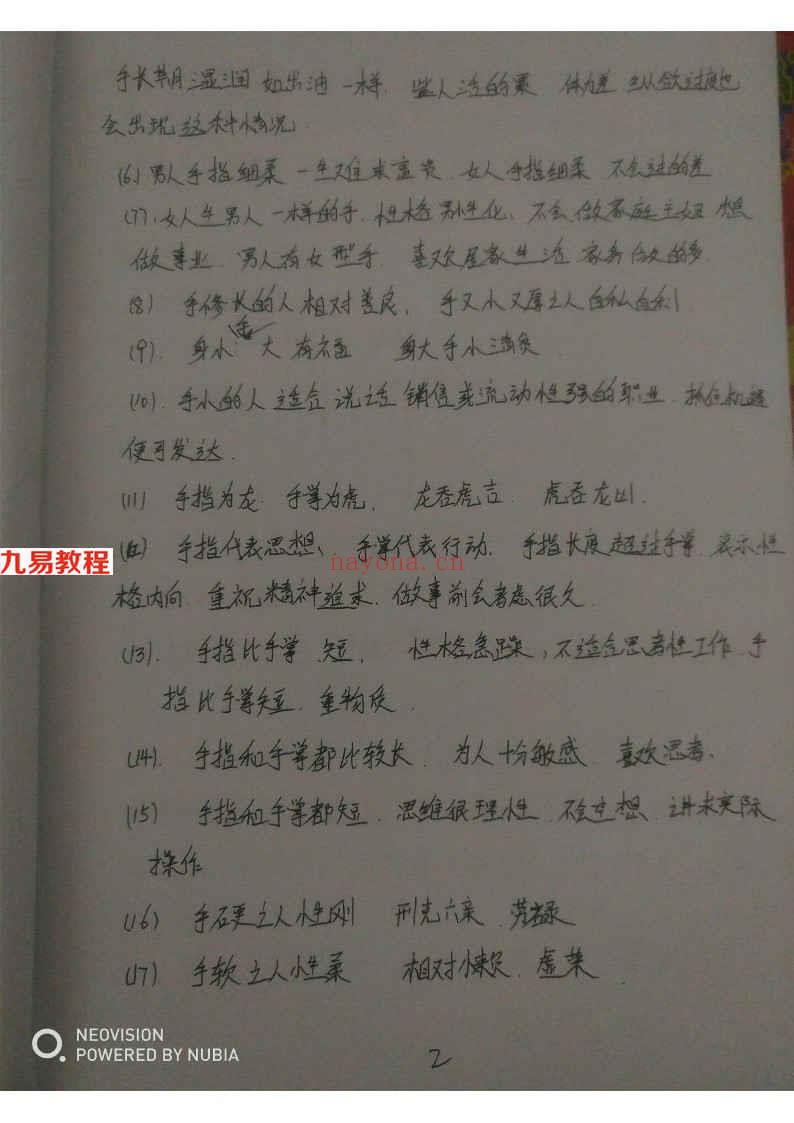 手长期湿润 如出油一样. 此人活的累 体力差 纵欲过度也
会出现这种情况.
(6) 男人手指细柔 一生难求富贵. 女人手指细柔 不会过的差
(7). 女人生男人一样的手. 性格男性化、不会做家庭主妇 想
做事业. 男人有女型手. 喜欢居家生活 家务做的多.
(8) 手修长的人相对善良, 手又小又厚之人自私自利
(9). 身小手大有福 身大手小清贫
(10). 手小的人适合说话 销售或流动性强的职业. 抓住机遇
便可发达.
(11) 手指为龙. 手掌为虎, 龙吞虎吉. 虎吞龙凶.
九易教程
nayona.cn
(12) 手指代表思想、手掌代表行动. 手指长度超过手掌. 表示性
格内向. 重视精神追求. 做事前会考虑很久.
(13). 手指比手掌 短, 性格急躁, 不适合思考性工作. 手
指比手掌短. 重物质.
(14). 手指和手掌都比较长. 为人十分敏感. 喜欢思考.
(15) 手指和手掌都短. 思维很理性. 不会空想. 讲求实际
操作
(16) 手硬之人性刚 刑克六亲. 劳碌
(17) 手软之人性柔 相对懒. 虚荣.
NEOVISION
POWERED BY NUBIA
2